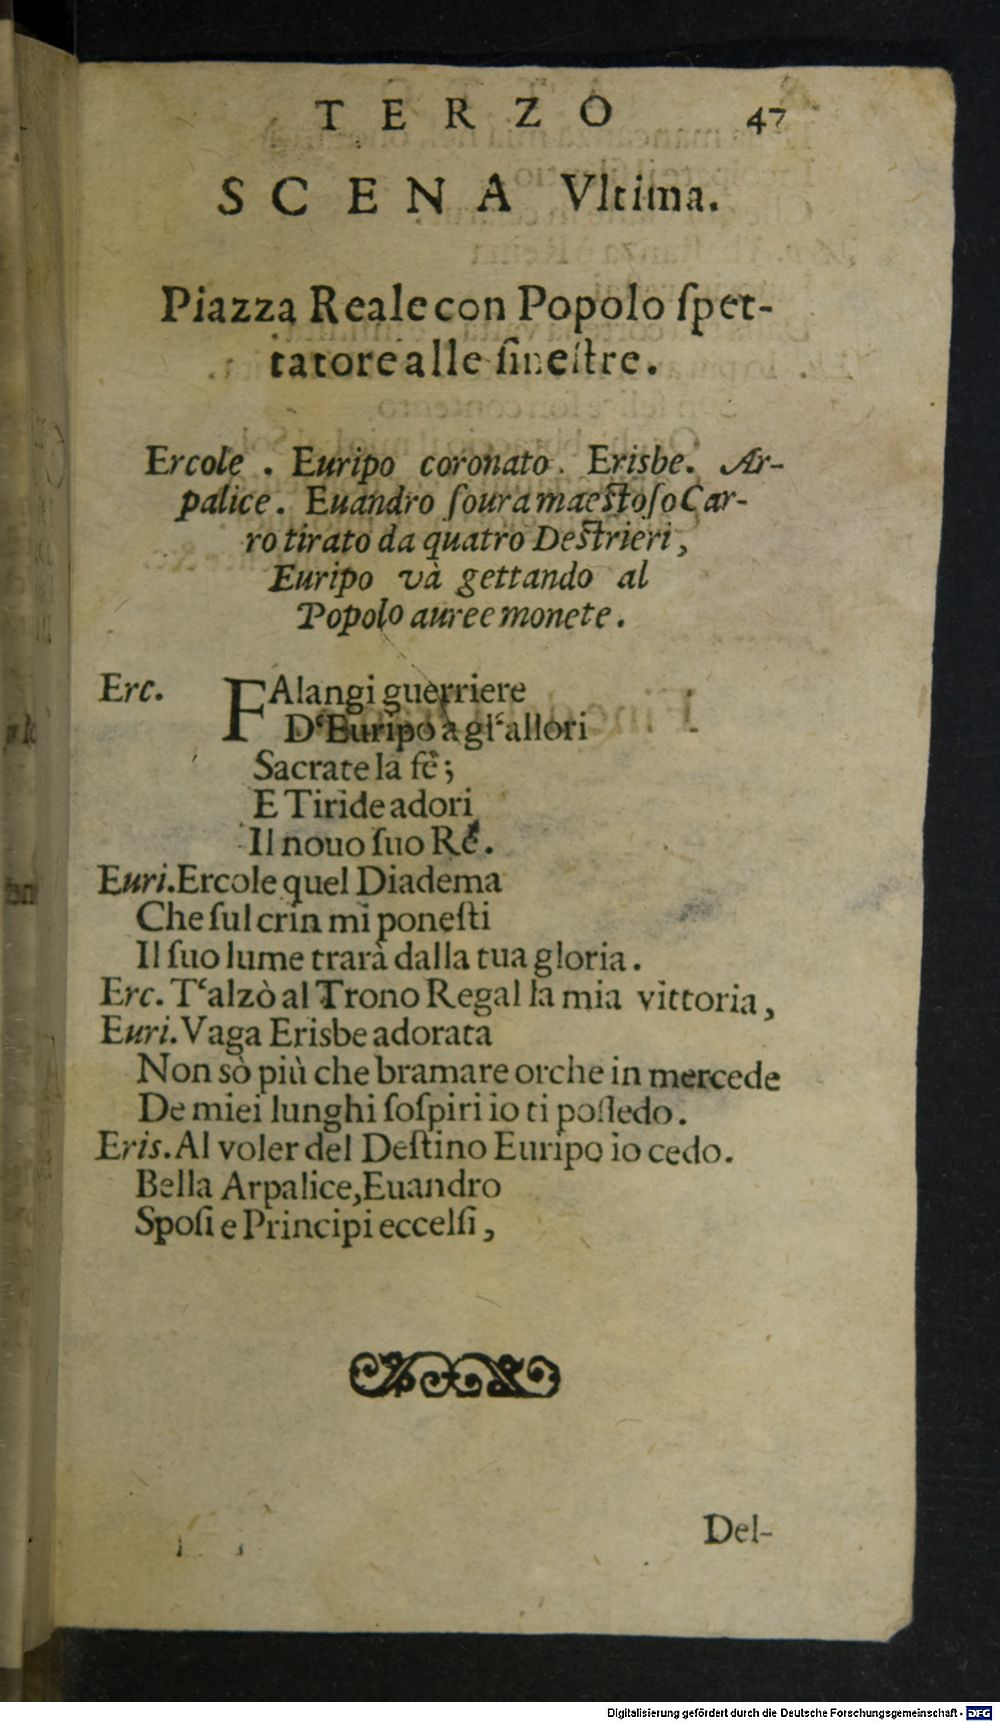 TERZO 47
SCENA Vltima.
Piazza Reale con Popolo ſpet-
tatore alle fineſtre.
Ercole . Euripo coronato. Erisbe. Ar-
palice. Euandro ſoura maeſtoſo Car-
ro tirato da quatro Deſtrieri,
Euripo và gettando al
Popolo auree monete.
Erc. FAlangi guerriere
D‘Euripo à gl‘allori
Sacrate la fè;
E Tiride adori
Il nouo ſuo Rè.
Euri. Ercole quel Diadema
Che ſul crin mi poneſti
Il ſuo lume trarà dalla tua gloria.
Erc. T‘alzò al Trono Regal la mia vittoria,
Euri. Vaga Erisbe adorata
Non sò più che bramare orche in mercede
De miei lunghi ſoſpiri io ti poſſedo.
Eris. Al voler del Deſtino Euripo io cedo.
Bella Arpalice, Euandro
Spoſi e Principi eccelſi,
Del-
Digitalisierung gefördert durch die Deutsche Forschungsgemeinschaft - DFG